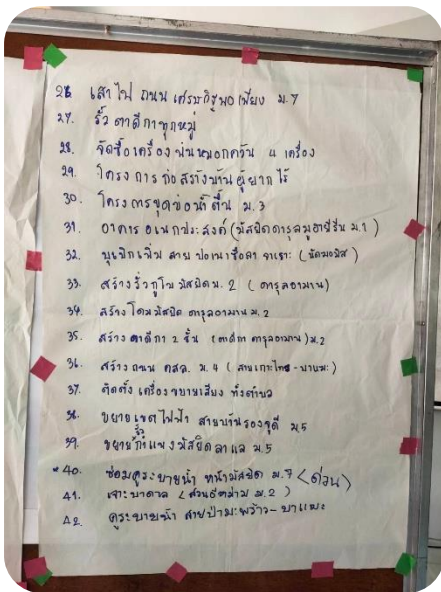 26 เสาไฟ ถนนเศรษฐกิจพอเพียง ม.7
27. รั้วตาดีกาทุกหมู่
28. จัดซื้อเครื่องพ่นหมอกควัน 4 เครื่อง
29. โครงการก่อสร้างบ้านผู้ยากไร้
30. โครงการขุดบ่อน้ำตื้น ม.3
31. อาคารอเนกประสงค์ (มัสยิดดารุลมูฮายีรีน ม.1)
32. บุกเบิกเพิ่ม สาย
33. สร้างรั้วกูโบมัสยิด ม. 2 (ดารุลอามาน)
34. สร้างโดมมัสยิด ดารุลอามาน ม.2
35. สร้าง ตาดีกา 2 ชั้น (ตาดีกา ดารุลอามาน) ม.2
36. สร้างถนน คสล. ม.4 (สายเกาะไทร - บาเมะ)
37. ติดตั้ง เครื่องขยายเสียง ทั้งตำบล
38. ขยายเขตไฟฟ้า สายบ้านรองซูดี ม.5
39. ขยายรั้วกำแพงมัสยิดลาแล ม.5
*40. ซ่อมคูระบายน้ำ หน้ามัสยิด ม.7 (ด่วน)
41. เจาะบาดาล (สวน ม.2)
42. คูระบายน้ำ สายป่ามะพร้าว - บาแมะ